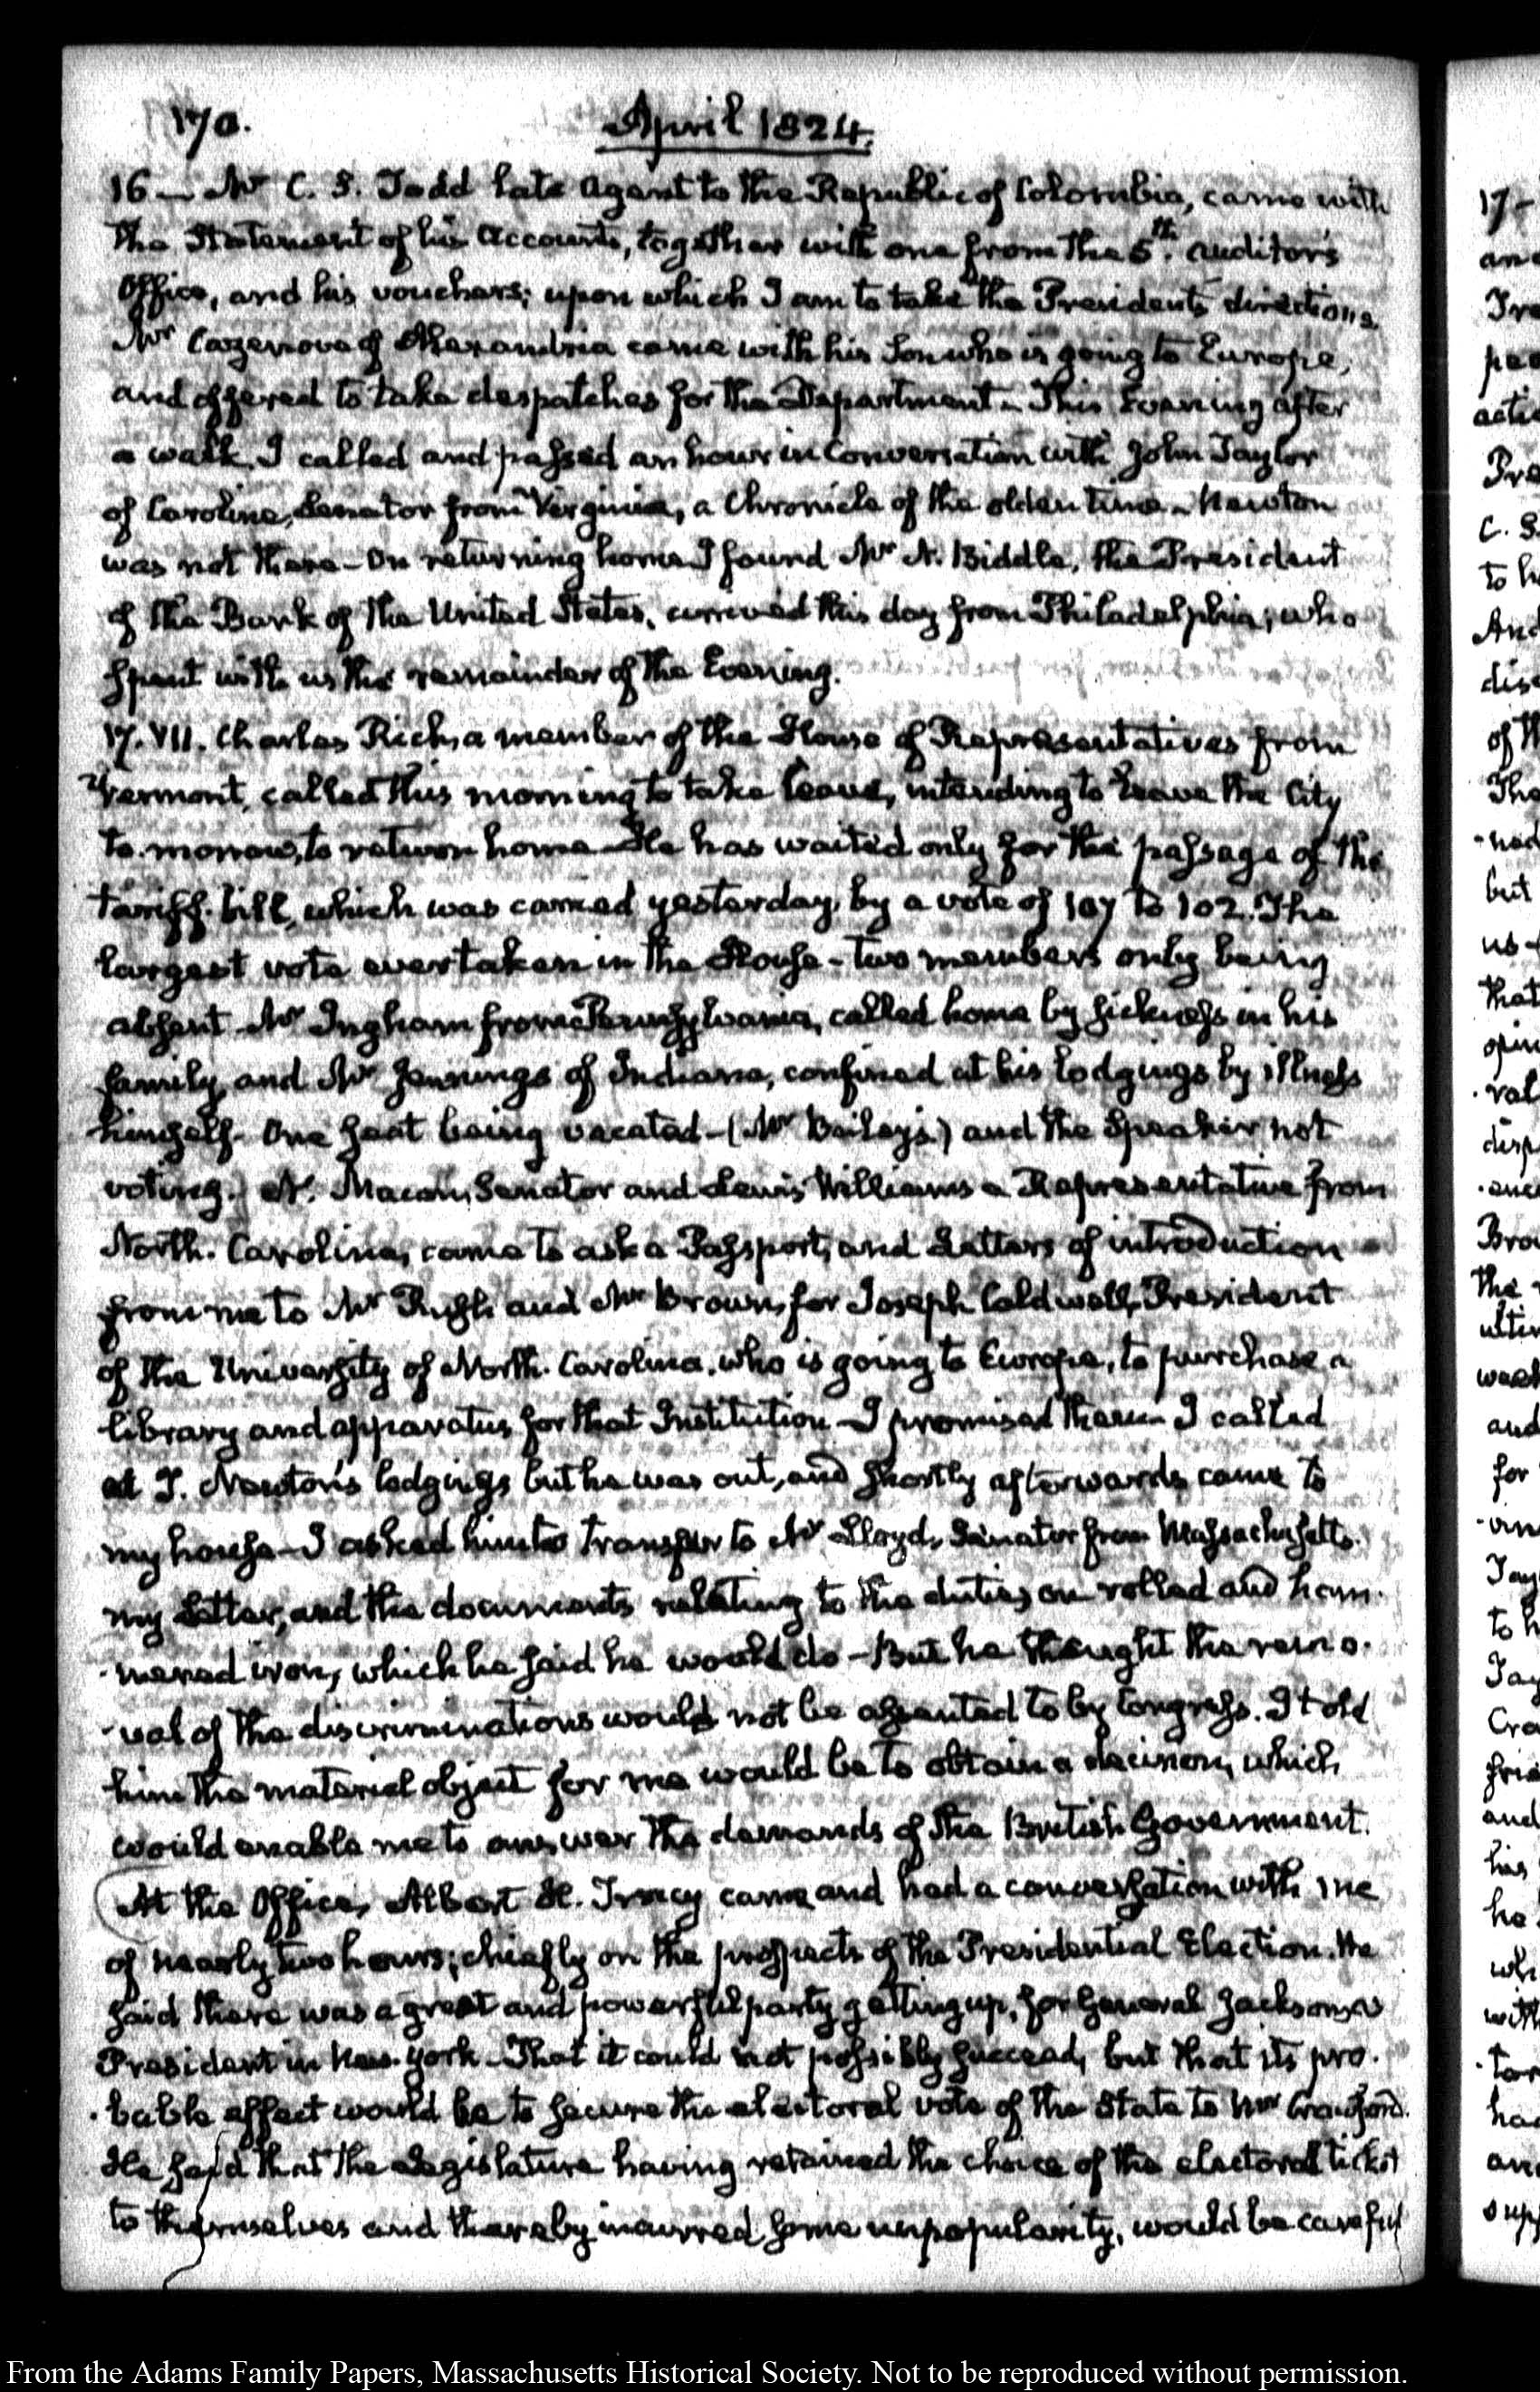 170.
April 1824.
16 — Mr C. S. Todd late Agent to the Republic of Colombia, came with
the Statement of his Accounts, together with one from the 5th. Auditor's
Office, and his vouchers; upon which I am to take the President's directions.
Mr Cazenove of Alexandria came with his Son who is going to Europe,
and offered to take despatches for the Department. This Evening after
a walk I called and passed an hour in Conversation with John Taylor
of Caroline, Senator from Virginia, a Chronicle of the olden time. Newton
was not there - On returning home I found Mr N. Biddle, the President
of the Bank of the United States, arrived this day from Philadelphia; who
spent with us the remainder of the Evening.
17. VII. Charles Rich, a member of the House of Representatives from
Vermont, called this morning to take leave, intending to leave the City
to-morrow, to return home - He has waited only for the passage of the
tariff-bill, which was carried yesterday, by a vote of 107 to 102. The
largest vote ever taken in the House - two members only being
absent. Mr Ingham from Pennsylvania, called home by sickness in his
family, and Mr Jennings of Indiana, confined at his lodgings by illness
himself. One seat being vacated - (Mr Bailey's) and the Speaker not
voting. N. Macon, Senator and Lewis Williams a Representative from
North-Carolina, came to ask a Passport, and Letters of introduction
from me to Mr Rush and Mr Brown, for Joseph Caldwell, President
of the University of North-Carolina, who is going to Europe, to purchase a
library and apparatus for that Institution - I promised them - I called
at T. Newton's lodgings but he was out, and shortly afterwards came to
my house - I asked him to transfer to Mr Lloyd, Senator from Massachusetts
my Letter, and the documents relating to the duties on rolled and ham-
-mered iron, which he said he would do - But he thought the remo-
-val of the discriminations would not be assented to by Congress. I told
him the material object for me would be to obtain a decision, which
would enable me to answer the demands of the British Government.
At the Office, Albert H. Tracy came and had a conversation with me
of nearly two hours; chiefly on the prospects of the Presidential Election. He
said there was a great and powerful party getting up, for General Jackson as
President in New-York - That it could not possibly succeed, but that its pro-
-bable effect would be to secure the electoral vote of the State to Mr Crawford.
He said that the Legislature having retained the choice of the electoral ticket
to themselves and thereby incurred some unpopularity, would be careful
17-
but
that
for
to h
and
his
he
with
From the Adams Family Papers, Massachusetts Historical Society. Not to be reproduced without permission.